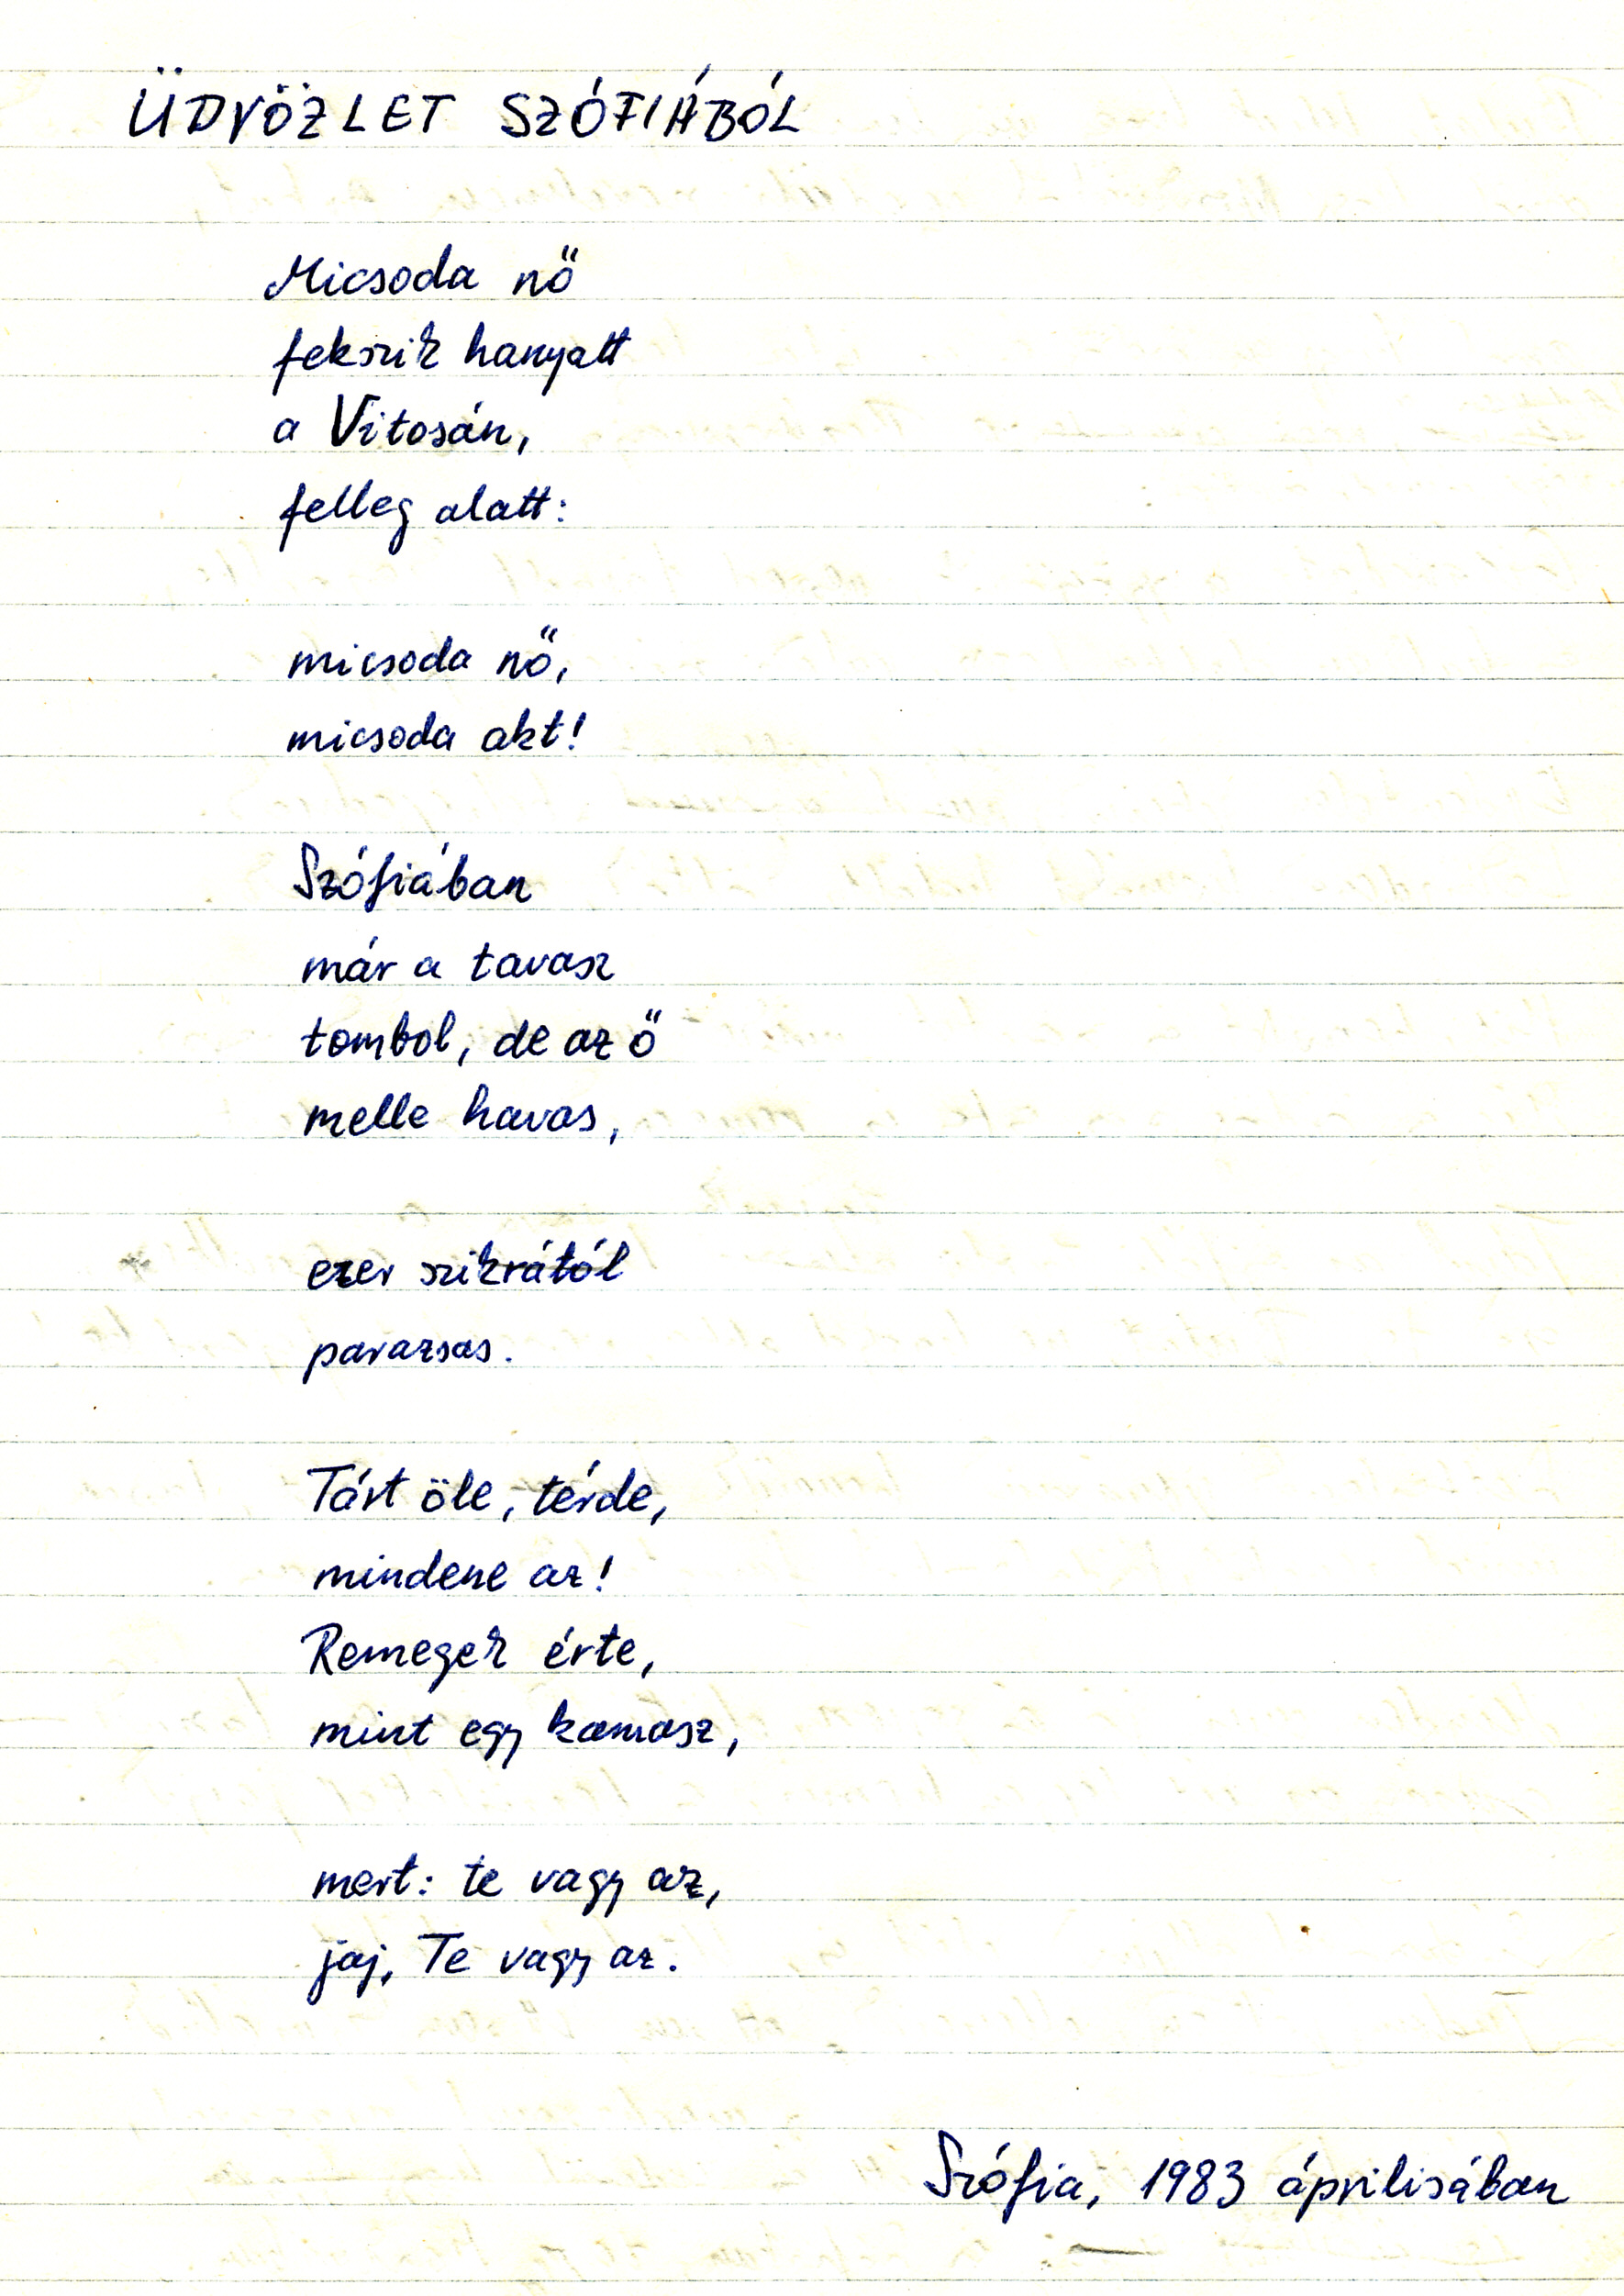 ÜDVÖZLET SZÓFIÁBÓL
Micsoda nő
fekszik hanyatt
a Vitosán,
felleg alatt:
micsoda nő,
micsoda akt!
Szófiában
már a tavasz
tombol, de az ő
melle havas,
ezer szikrától
parazsas.
Tárt öle, térde,
mindene az!
Remegek érte,
mint egy kamasz,
mert: te vagy az,
jaj, Te vagy az.
Szófia, 1983 áprilisában